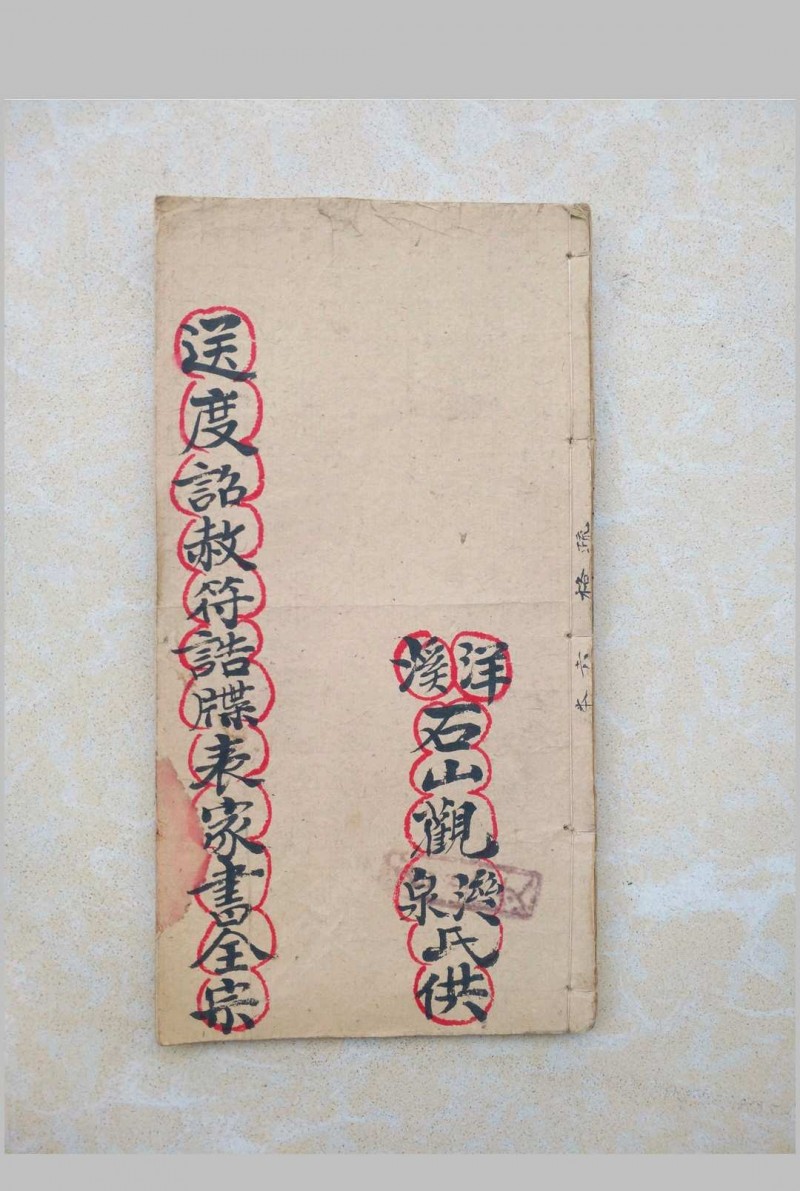 洋溪
石山觀
泉氏供
送度詔赦符誥牒表家書全宗